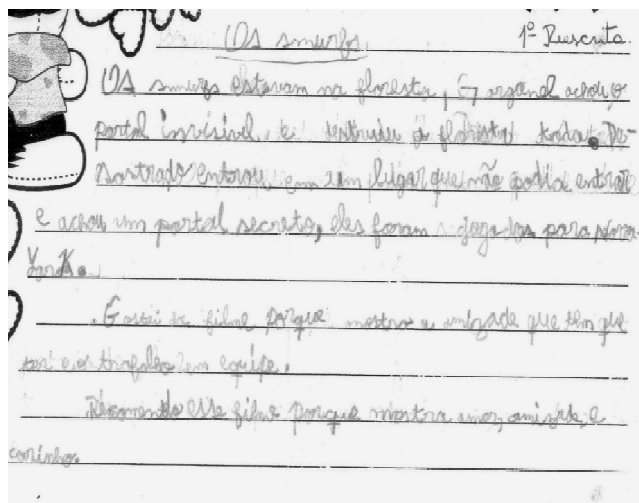 Os smurfs
1º Reescrita.
Os smurfs estavam na floresta, Garganel achou o
portal invisível e destruiu a floresta toda. De-
sastrado entrou em um lugar que não podia entrar
e achou um portal secreto, eles foram jogados para nova
York.
Gostei de filme porque mostra a amizade que tem que
ter e o trabalho em equipe.
Recomendo esse filme porque mostra amor, amizade, e
carinho.